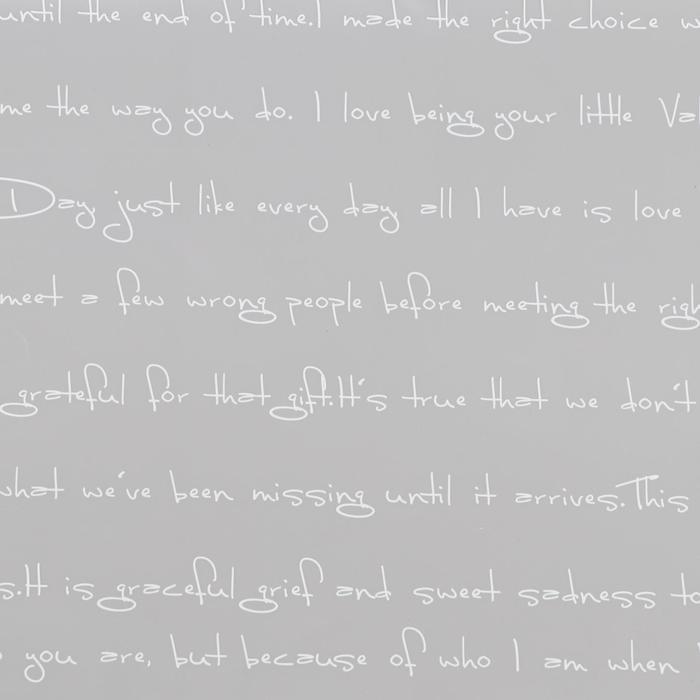 until the end of time.I made the right choice w
me the way you do. I love being your little Va
Day, just like every day all I have is love
meet a few wrong people before meeting the righ
grateful for that gift.It's true that we don't
what we've been missing until it arrives.This
s.It is graceful grief and sweet sadness to
you are, but because of who I am when